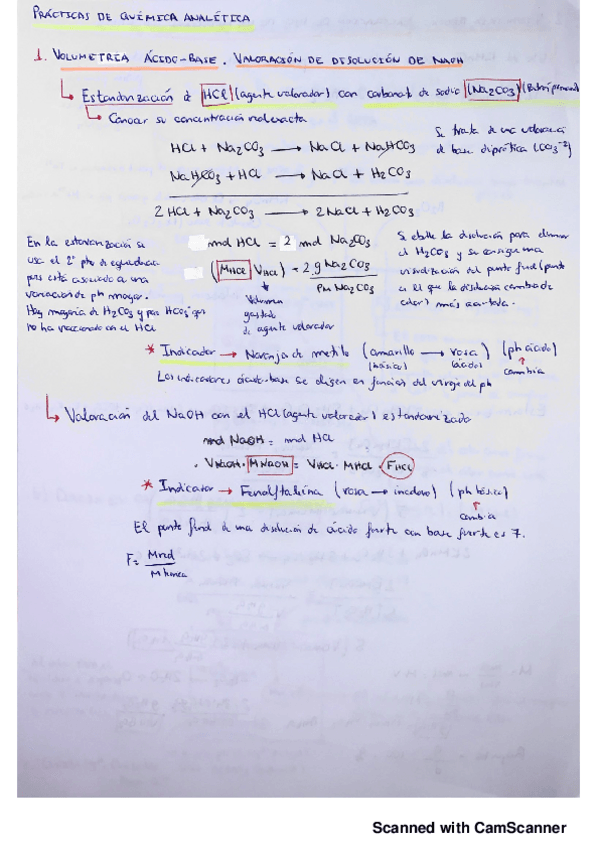 PRÁCTICAS DE QUÍMICA ANALÍTICA
1. VOLUMETRIA ÁCIDO-BASE. VALORACIÓN DE DISOLUCIÓN DE NaOH
Estandarización de HCl (agente valorador) con carbonato de sodio (Na2CO3) (Patrón primario)
Conocer su concentración
Se trata de una valoración
de base diprótica (CO3-2)
HCl + Na2CO3 → NaCl + NaHCO3
NaHCO3 + HCl → NaCl + H2CO3
2 HCl + Na2CO3 → 2 NaCl + H2CO3
En la estandarización se
usa el 2º pto de equivalencia
pues está asociado a una
variación de ph mayor.
Hay mayoría de H2CO3 y poco HCO3- que
no ha reaccionado con el HCl
mol HCl = 2 mol Na2CO3
(MHCl VHCl) = 2 · g Na2CO3 / Pm Na2CO3
Volumen
gastado
de agente valorador
Se ebulle la disolución para eliminar
el H2CO3 y se consigue una
visualización del punto final (punto
en el que la disolución cambia de
color) más acertada.
* Indicador → Naranja de metilo (amarillo → rosa) (ph ácido)
(básico) (ácido) cambia
Los indicadores ácido-base se eligen en función del viraje del ph
Valoración del NaOH con el HCl (agente valorador) estandarizado
mol NaOH = mol HCl
VNaOH · MNaOH = VHCl · MHCl · FHCl
* Indicador → Fenolftaleína (rosa → incoloro) (ph básico)
cambia
El punto final de una disolución de ácido fuerte con base fuerte es 7.
F = Mreal / Mteórica
Scanned with CamScanner